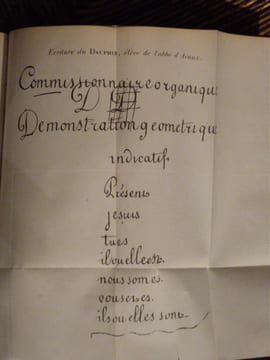 Ecriture du DAUPHIN, élève de l'abbé d'Avaux.
Commissionnaire organique
D
Demonstration geometrique
indicatif
Présent
jesuis
tues
ilouelleest
noussomes
vouseres
ilsouellessont